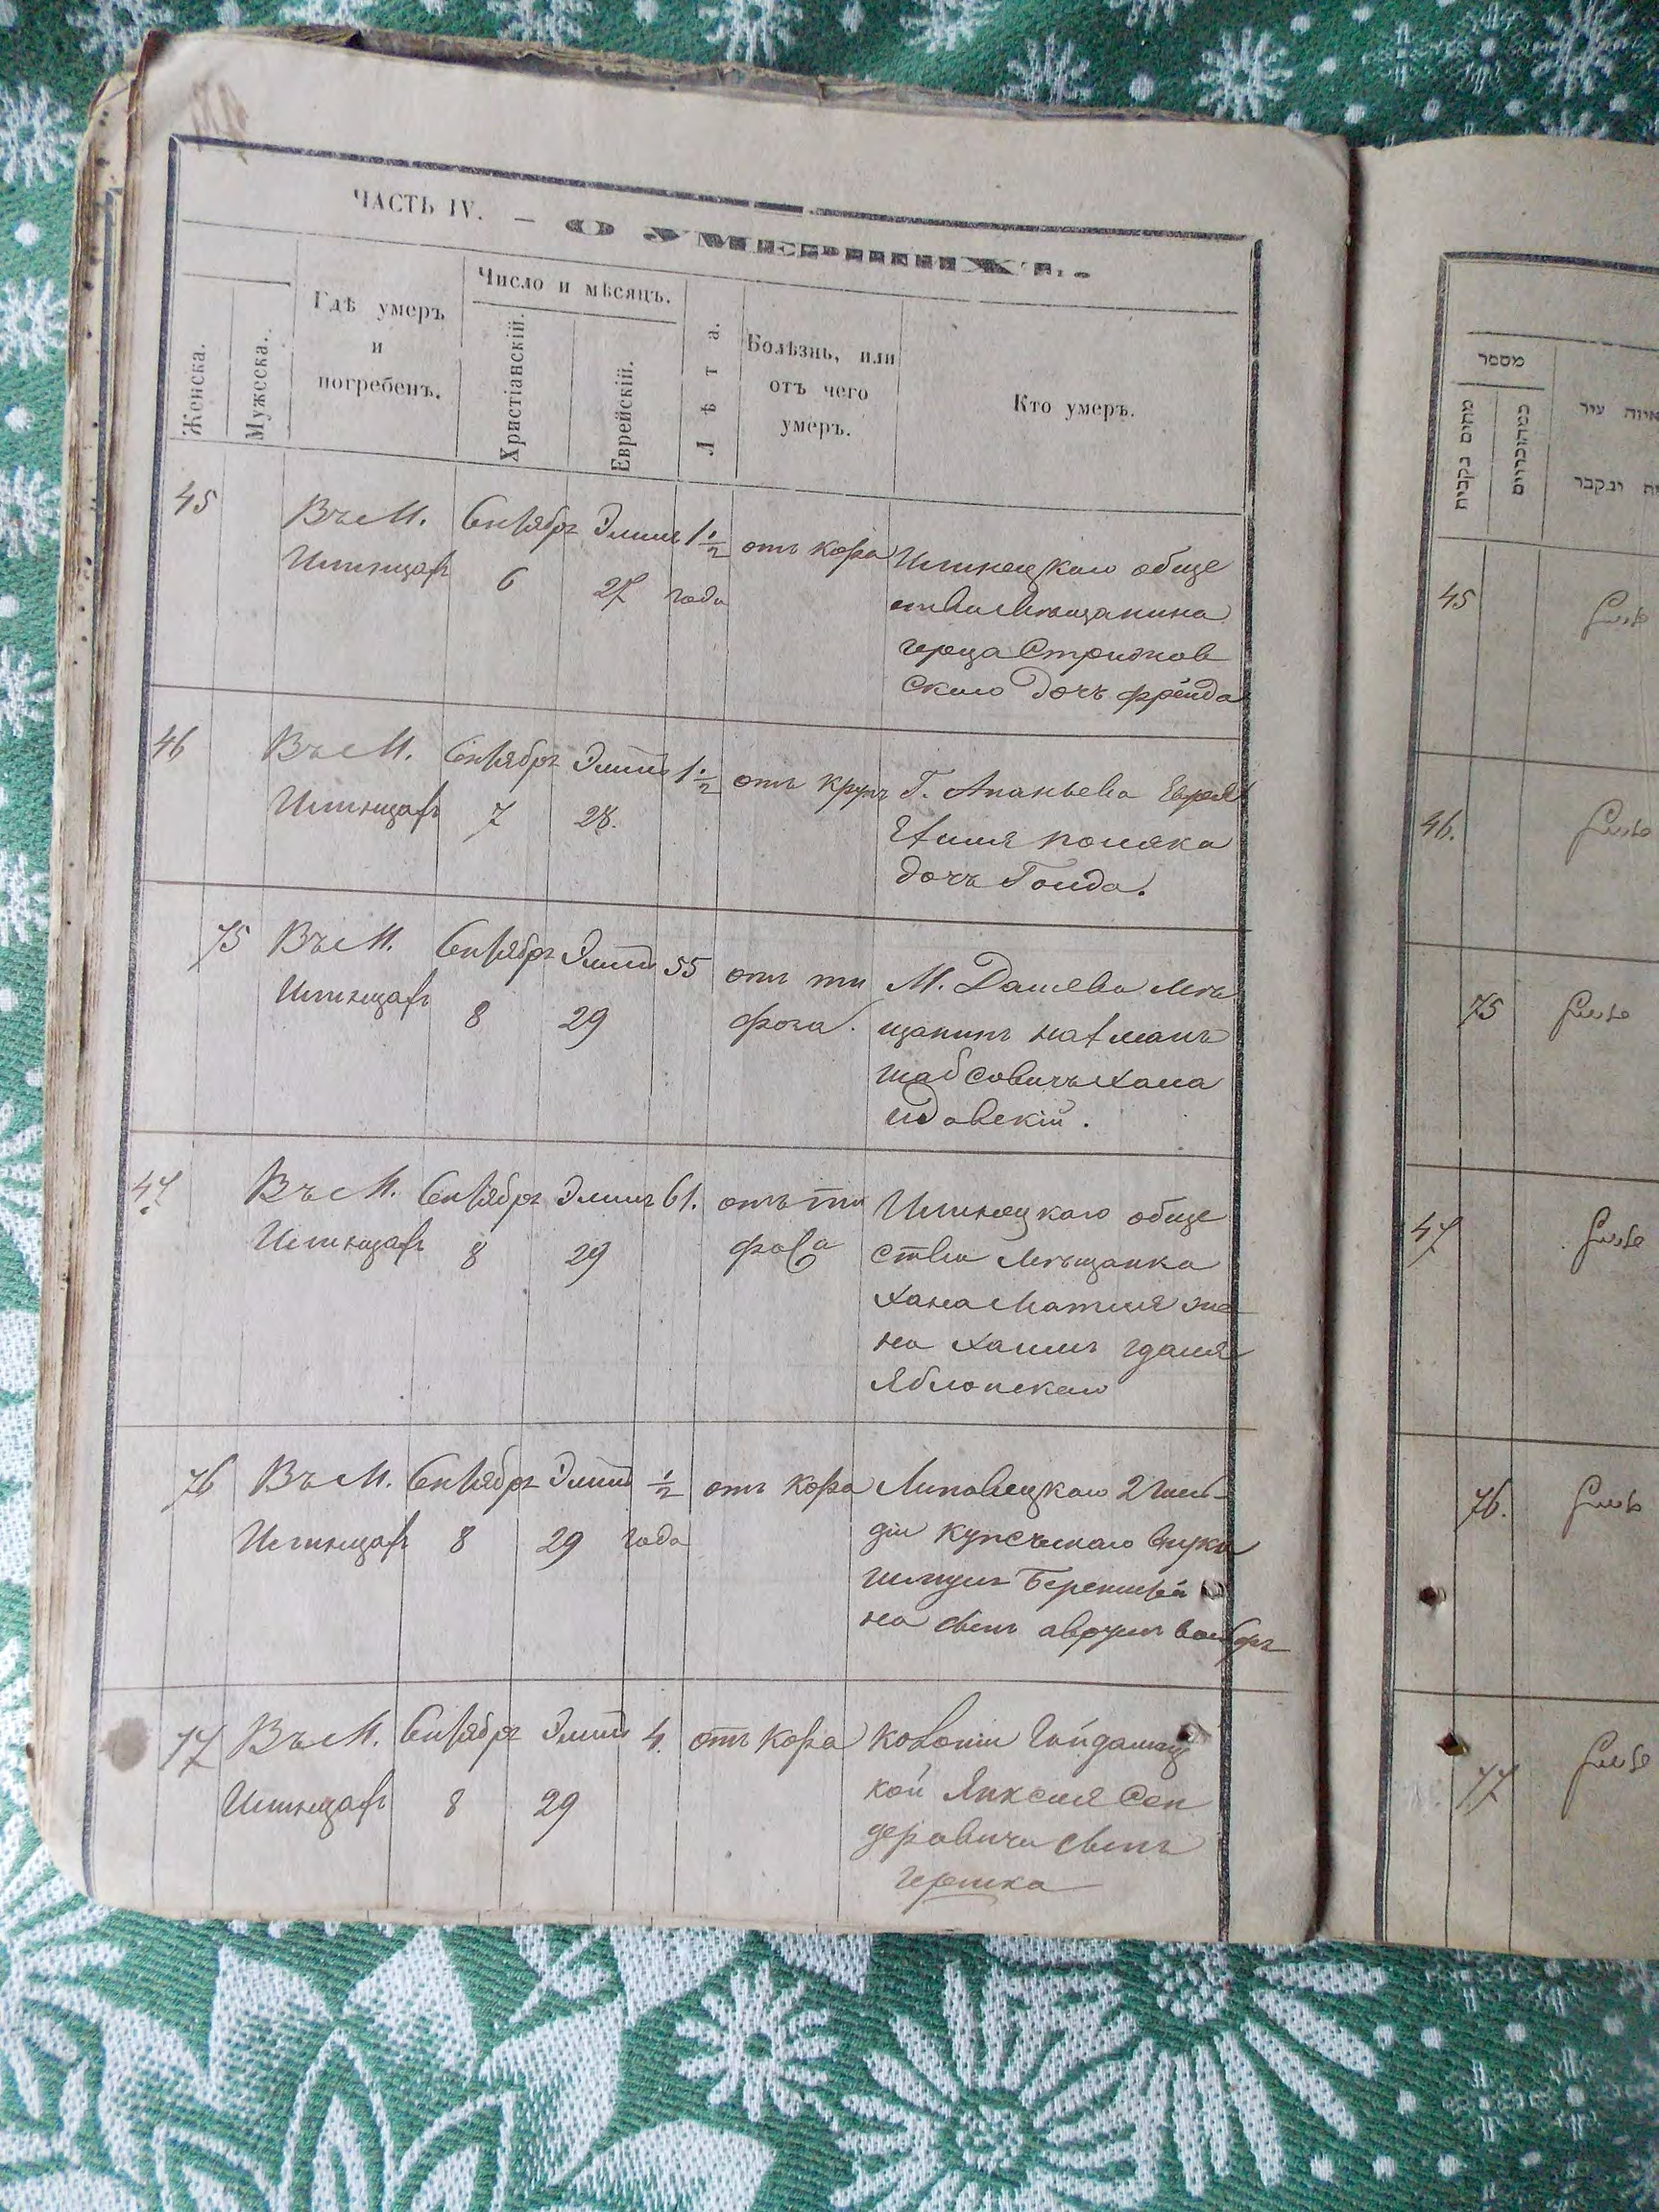 ЧАСТЬ IV. — О УМЕРШИХЪ.
Женска.
Мужеска.
Гдѣ умеръ
и
погребенъ.
Число и мѣсяцъ.
Христіанскій.
Еврейскій.
Лѣта.
Болѣзнь, или
отъ чего
умеръ.
Кто умеръ.
45
Въ М.
Илинцахъ
Сентябръ
6
Элилъ
27
1 1/2
года
отъ кора
Илинецкаго обще
ства мѣщанина
герца Стрижов
скаго дочъ фрейда
46
Въ М.
Илинцахъ
Сентябръ
7
Элилъ
28.
1 1/2
отъ крупъ
Г. Ананьева Еврея
поляка
дочъ Голда.
75
Въ М.
Илинцахъ
Сентябръ
8
Элилъ
29
55
отъ ти
фоза.
М. Дашева мѣ
щанинъ нахманъ
шабсовичъ хама
йдовскій.
47
Въ М.
Илинцахъ
Сентябръ
8
Элилъ
29
61.
отъ ти
фоза
Илинецкаго обще
ства мѣщанка
хана матля же
на хаимъ гдаля
Яблонскаго
76
Въ М.
Илинцахъ
Сентябръ
8
Элилъ
29
1/2
года
отъ кора
Липовецкаго 2 гиль
діи внука
на сынъ аврумъ
77
Въ М.
Илинцахъ
Сентябръ
8
Элилъ
29
4.
отъ кора
Колоніи
кой Янкеля Сен
деровича сынъ
гершка
מספר
נקבות מתים
מהזכרים
איזה עיר
ונקבר
45
46.
75
47
76.
77